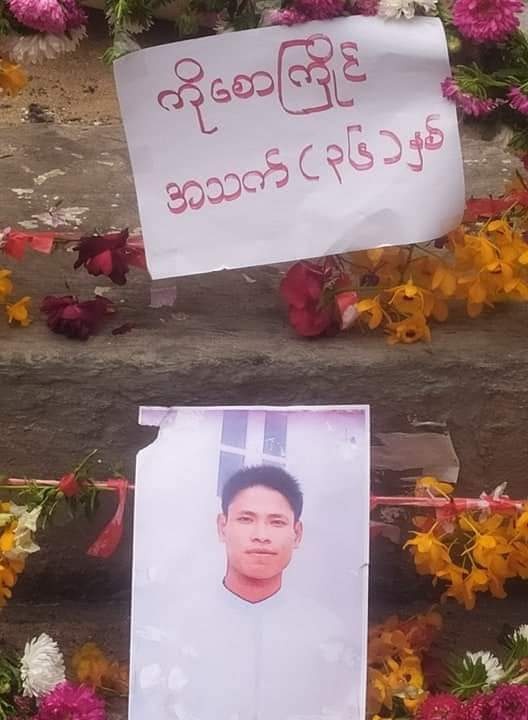 ကိုစောကြိုင်
အသက် (၃၆) နှစ်